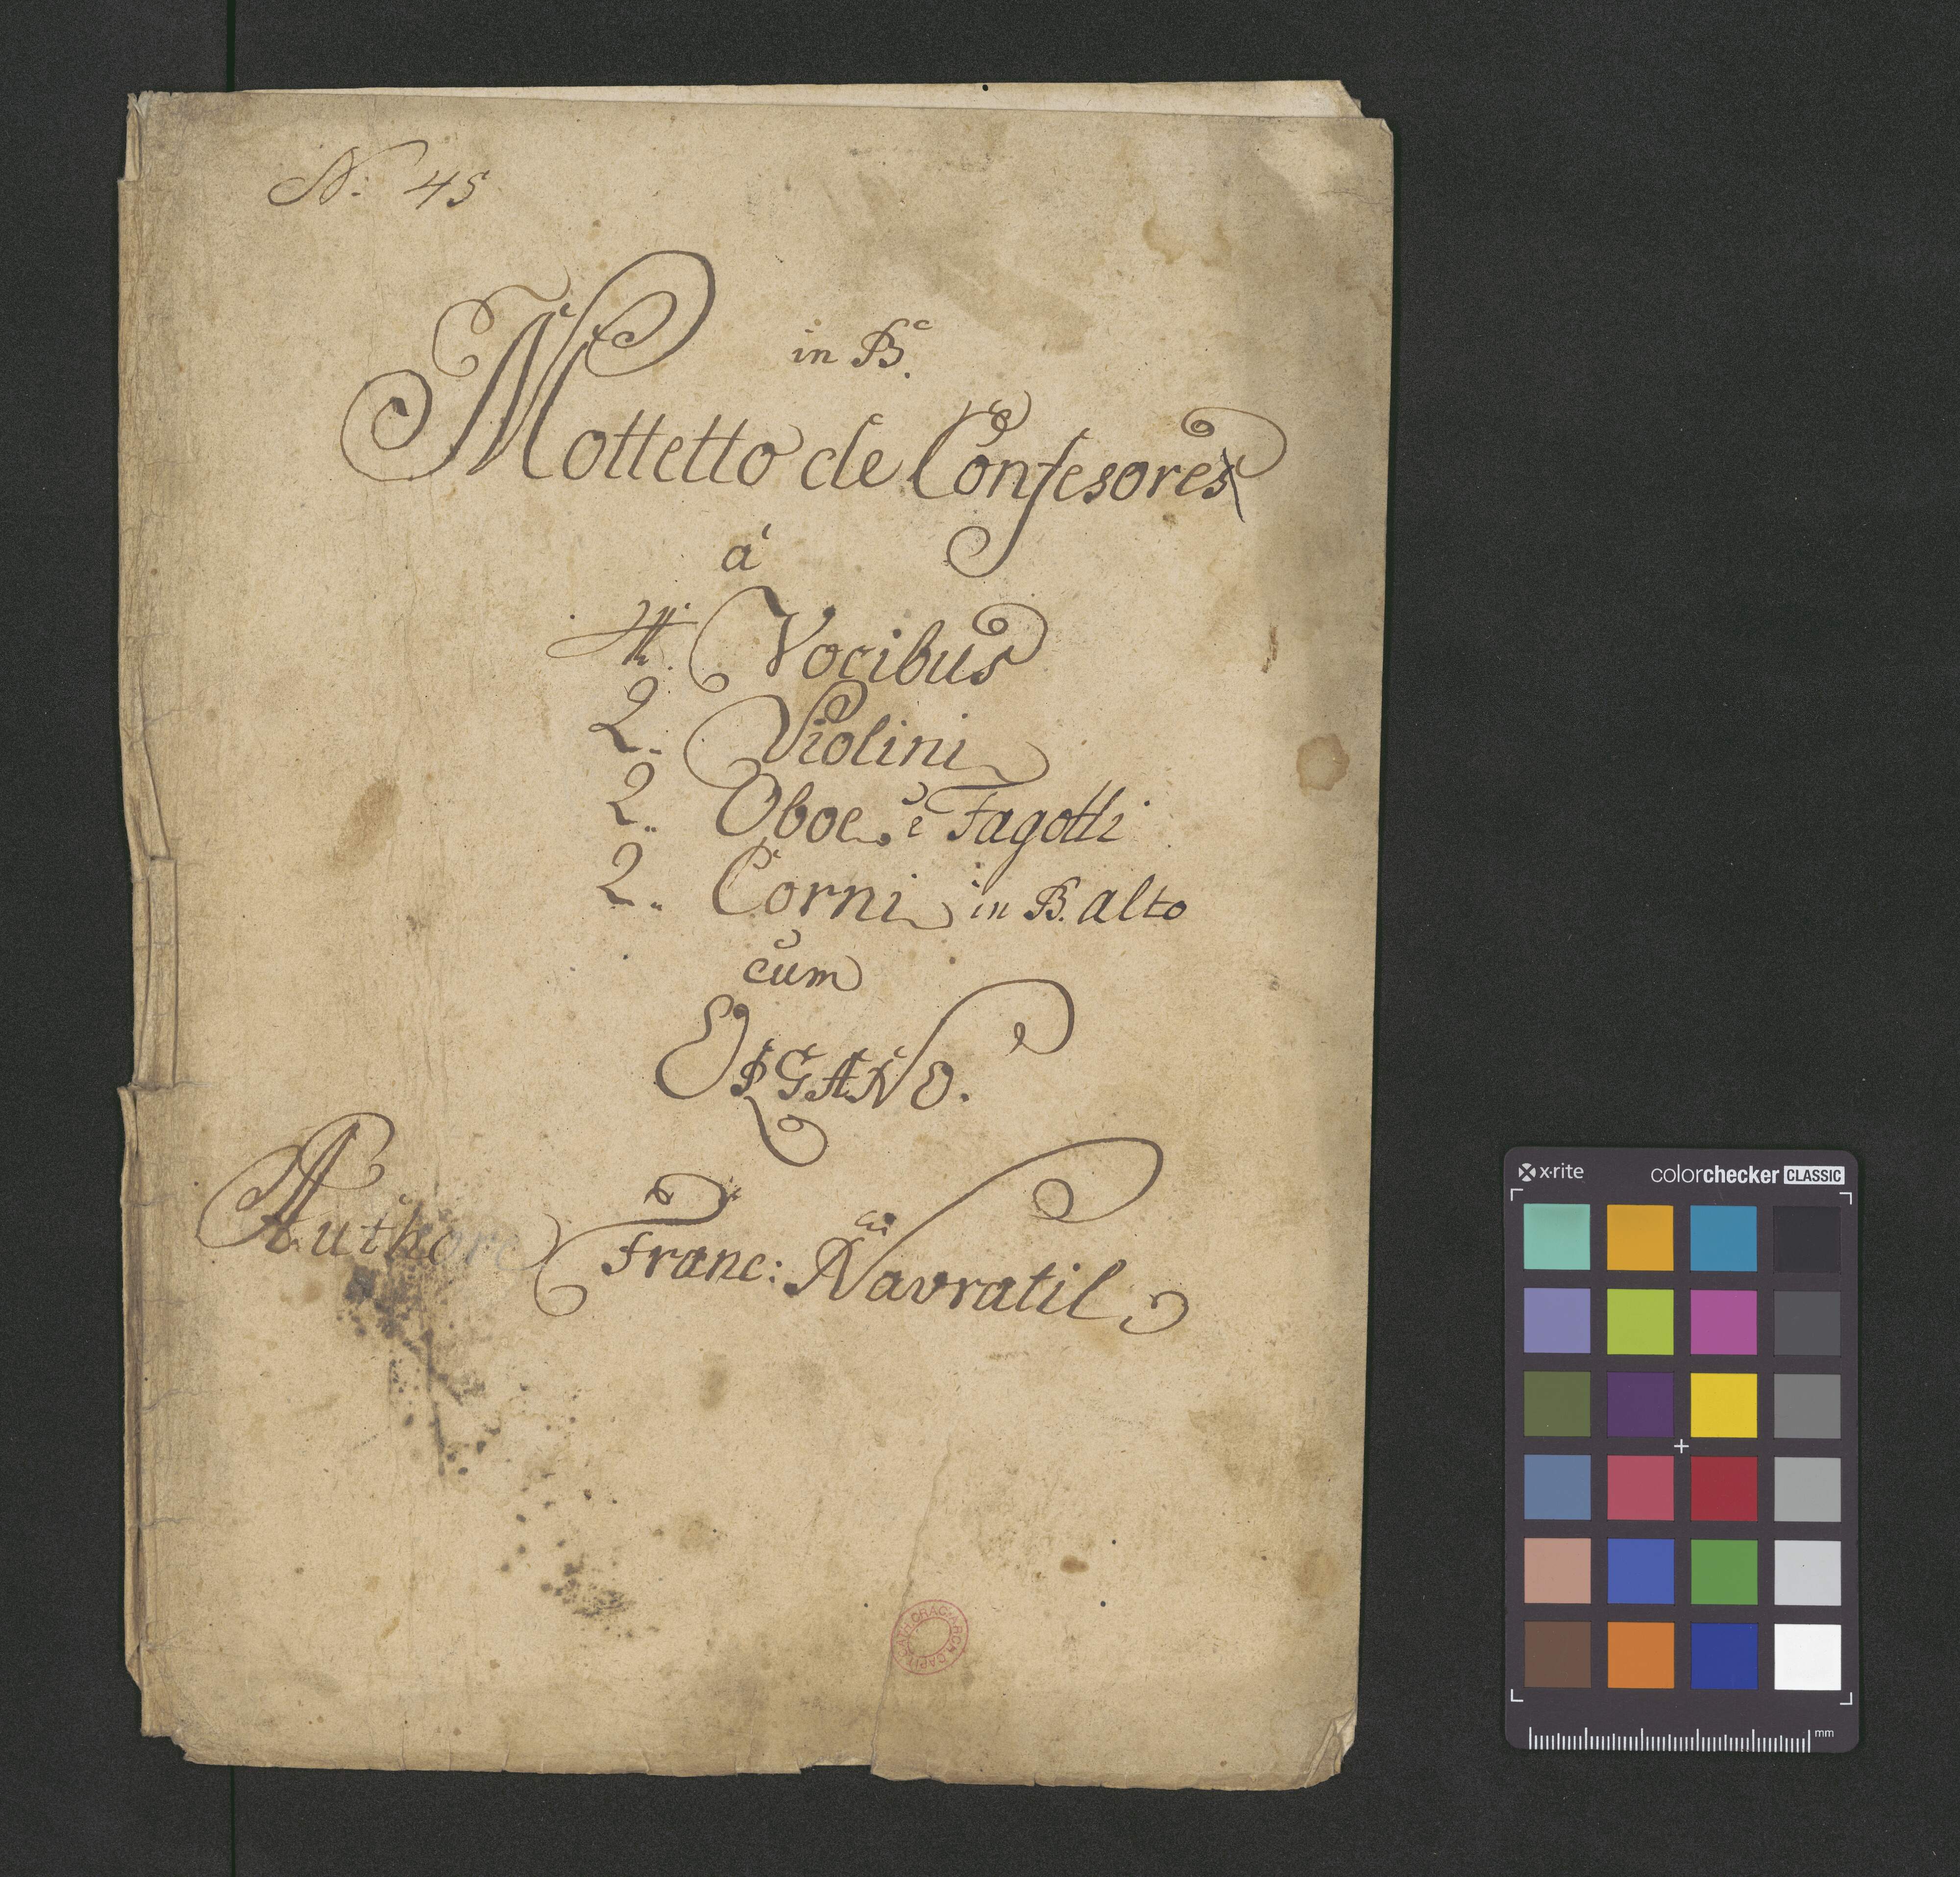 N: 45
in B.
Mottetto de Confesores
á
4. Vocibus
2. Violini
2. Oboe. e Fagotti
2. Corni in B. alto
cum
ORGANO.
Authore Franc: Navratil
x·rite colorchecker CLASSIC
mm